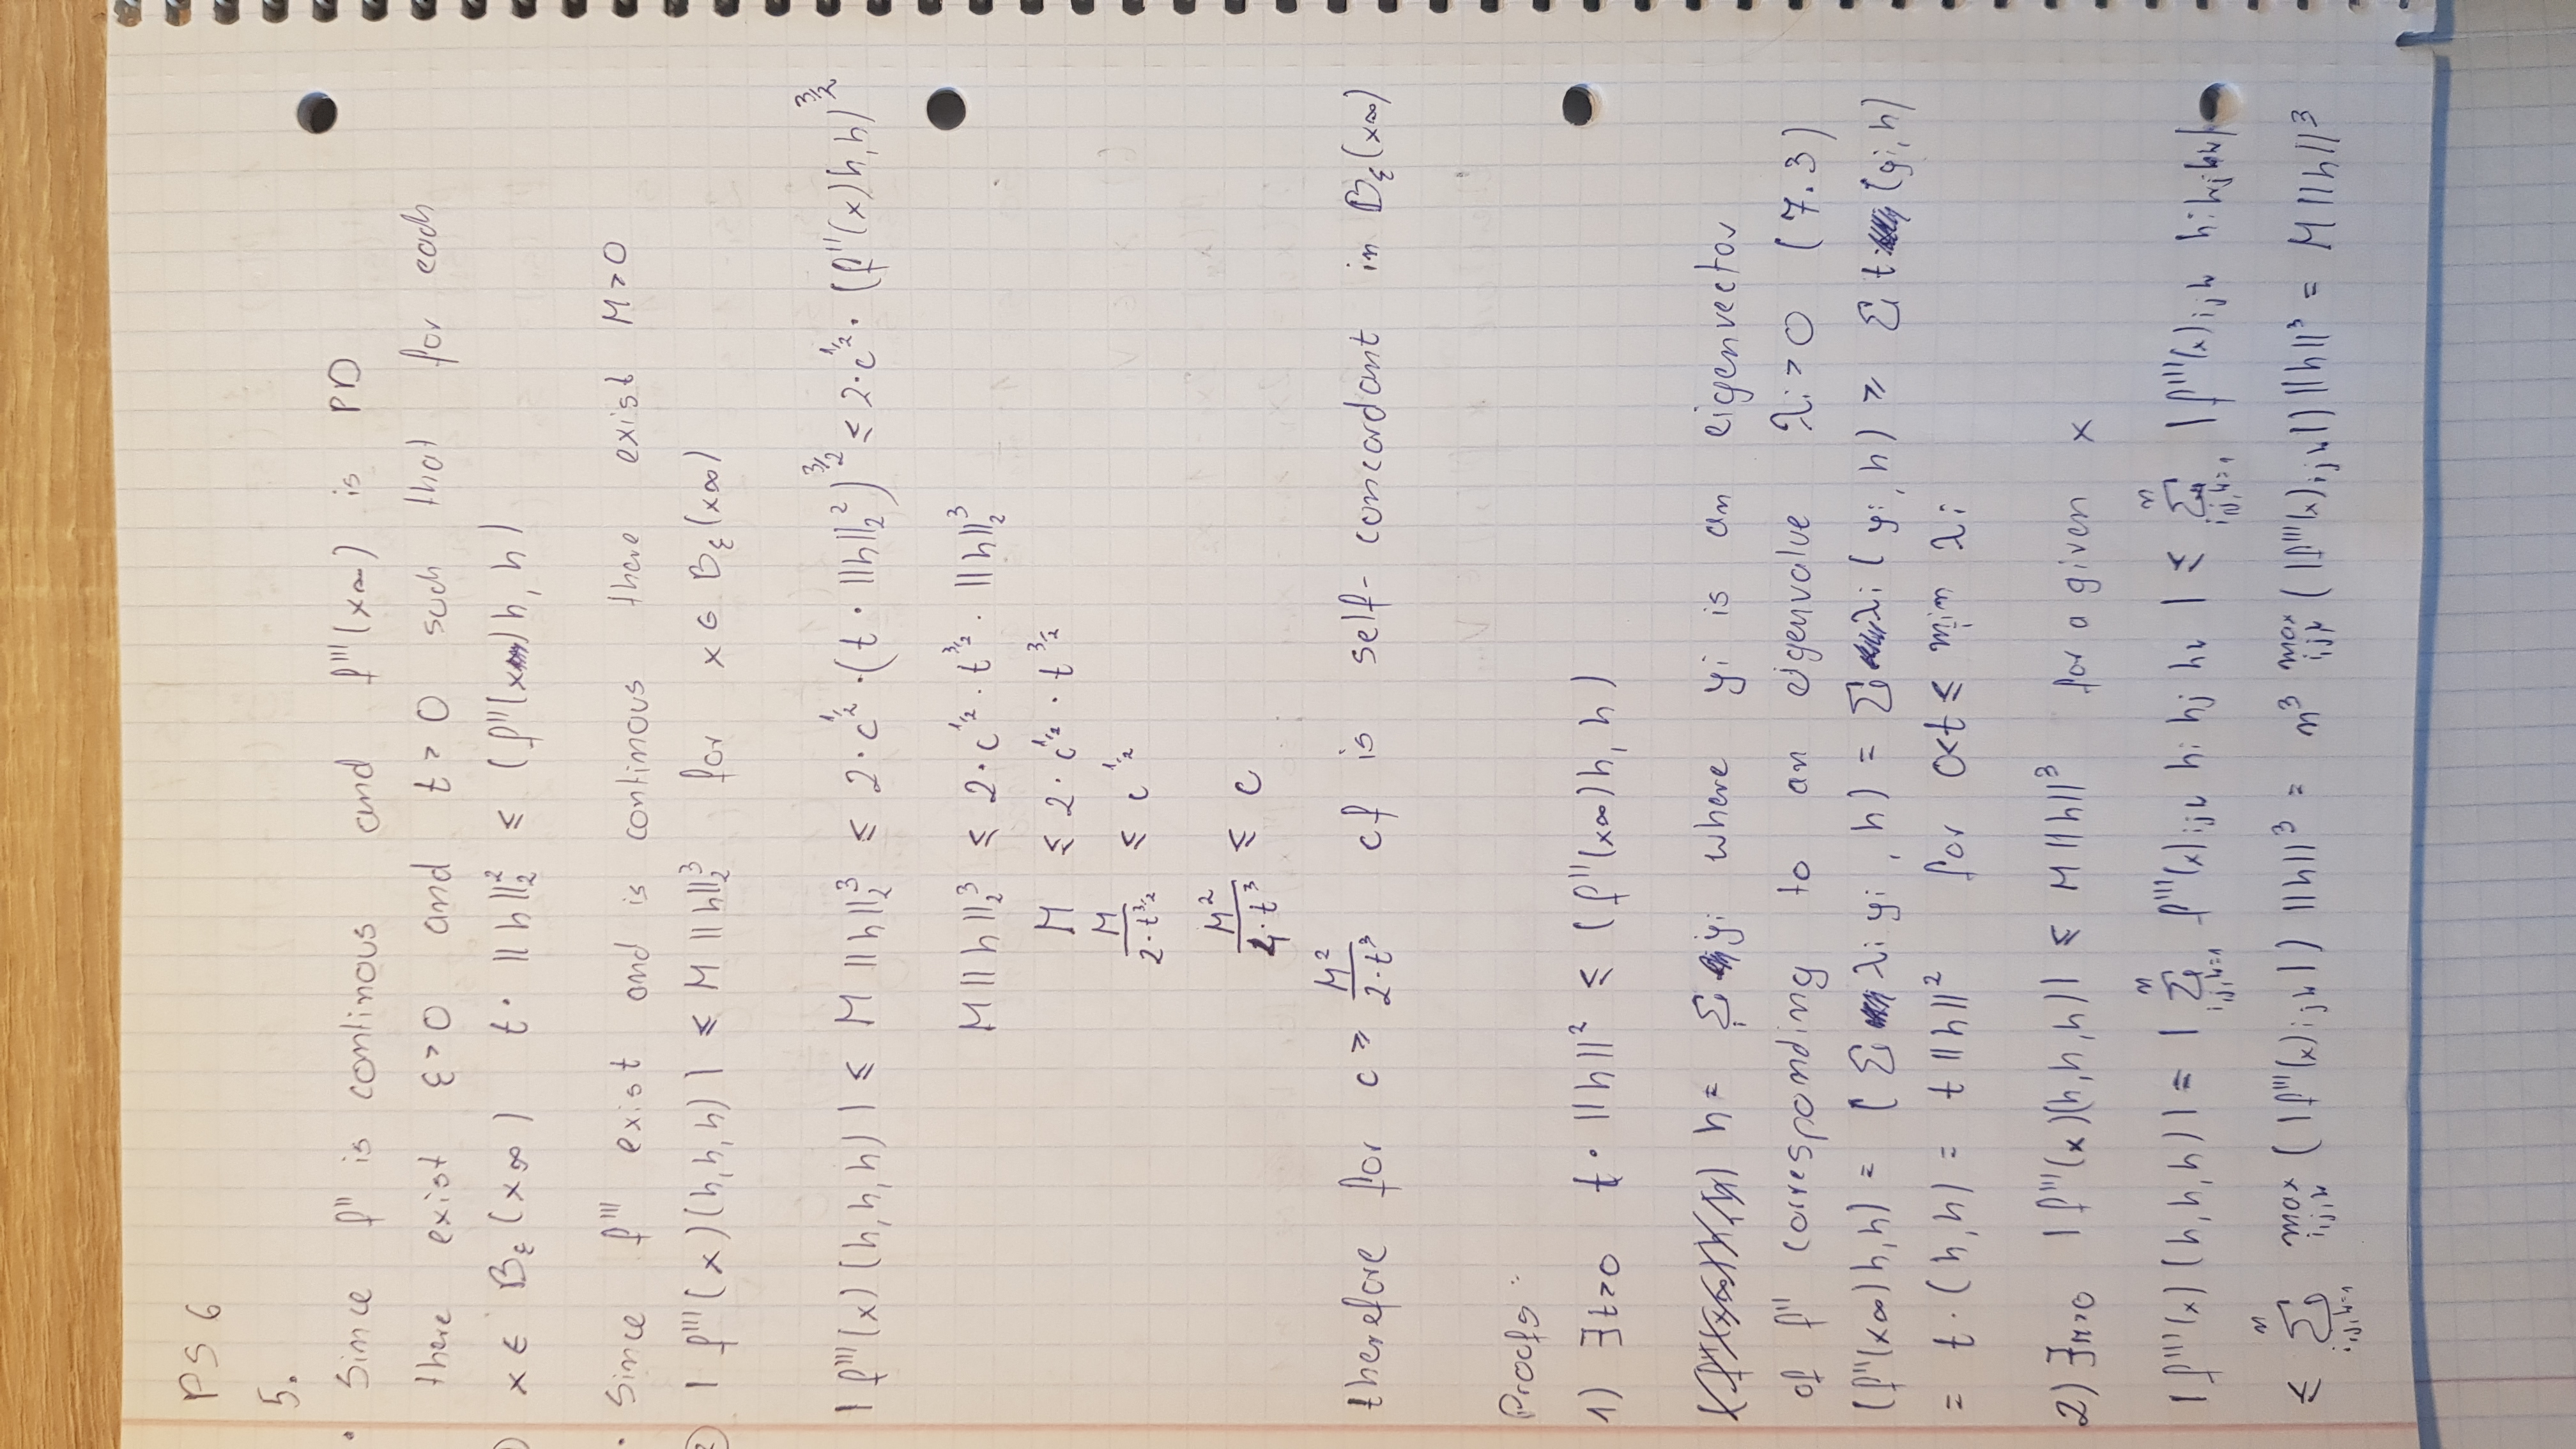 PS 6
5.
• Since f'' is continous and f'''(x∞) is PD
there exist ε>0 and t>0 such that for each
x ∈ Bε(x∞) t·||h||₂² ≤ (f''(x)h, h)
• Since f''' exist and is continous there exist M>0
|f'''(x)(h,h,h)| ≤ M||h||₂³ for x ∈ Bε(x∞)
|f'''(x)(h,h,h)| ≤ M||h||₂³ ≤ 2·c^½·(t·||h||₂²)^3/2 ≤ 2·c^½·(f''(x)h,h)^3/2
M||h||₂³ ≤ 2·c^½·t^3/2·||h||₂³
M ≤ 2·c^½·t^3/2
M/(2·t^3/2) ≤ c^½
M²/(4·t³) ≤ c
therefore for c ≥ M²/(2·t³) cf is self-concordant in Bε(x∞)
Proofs:
1) ∃t>0 t·||h||² ≤ (f''(x∞)h, h)
h = Σᵢ yᵢ where yᵢ is an eigenvector
of f'' corresponding to an eigenvalue λᵢ>0 (7.3)
(f''(x∞)h,h) = (Σ λᵢ yᵢ, h) = Σ λᵢ(yᵢ, h) ≥ Σ t (yᵢ,h)
= t·(h,h) = t||h||² for 0<t≤ minᵢ λᵢ
2) ∃M>0 |f'''(x)(h,h,h)| ≤ M||h||³ for a given x
|f'''(x)(h,h,h)| = |Σⁿ i,j,k=1 f'''(x)ijk hi hj hk| ≤ Σⁿ i,j,k=1 |f'''(x)ijk hi hj hk|
≤ Σⁿ i,j,k=1 max i,j,k (|f'''(x)ijk|) ||h||³ = n³ max i,j,k (|f'''(x)ijk|) ||h||³ = M||h||³